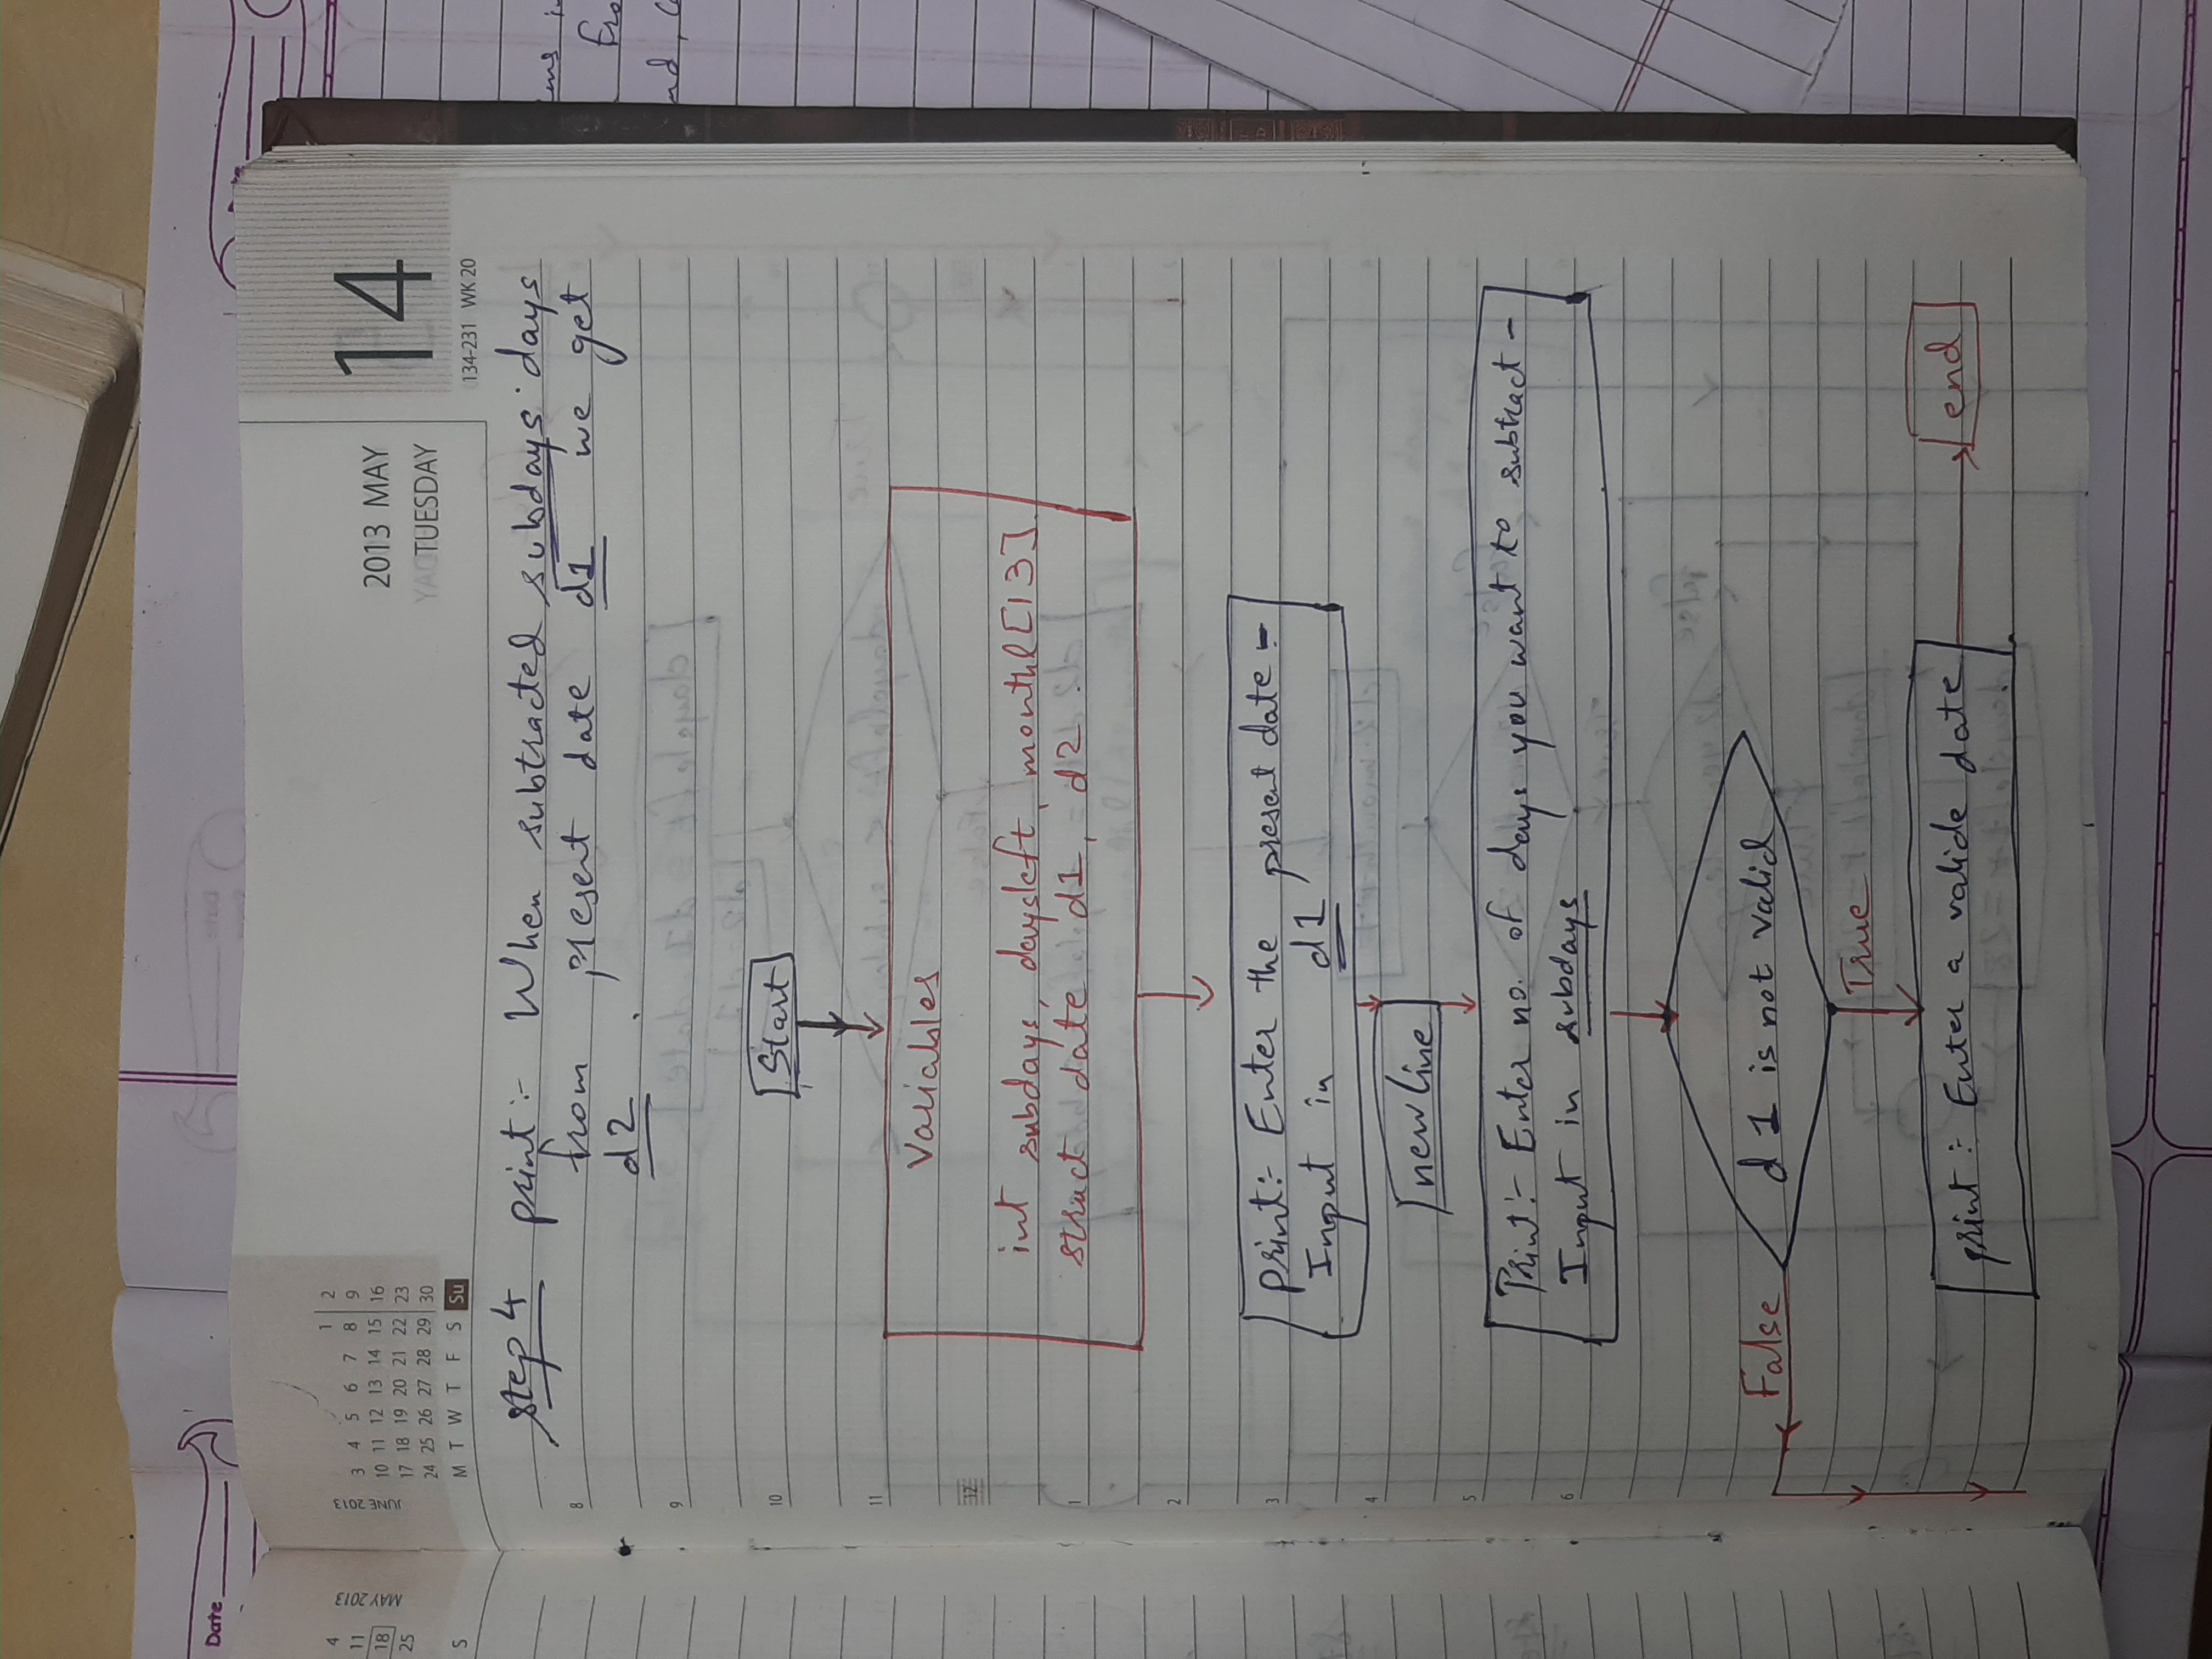 Date
4
11
18
25
S
MAY 2013
JUNE 2013
1 2
3 4 5 6 7 8 9
10 11 12 13 14 15 16
17 18 19 20 21 22 23
24 25 26 27 28 29 30
M T W T F S Su
2013 MAY
TUESDAY
14
134-231 WK 20
step 4 print :- When subtracted subdays days
8
from present date d1 we get
d2 .
9
10
Start
11
Variables
12
int subdays, daysleft, month[13]
1
struct date d1, d2
2
3
print:- Enter the present date -
Input in d1
4
new line
5
Print:- Enter no. of days you want to subtract -
6
Input in subdays
d1 is not valid
False
True
print :- Enter a valide date
end